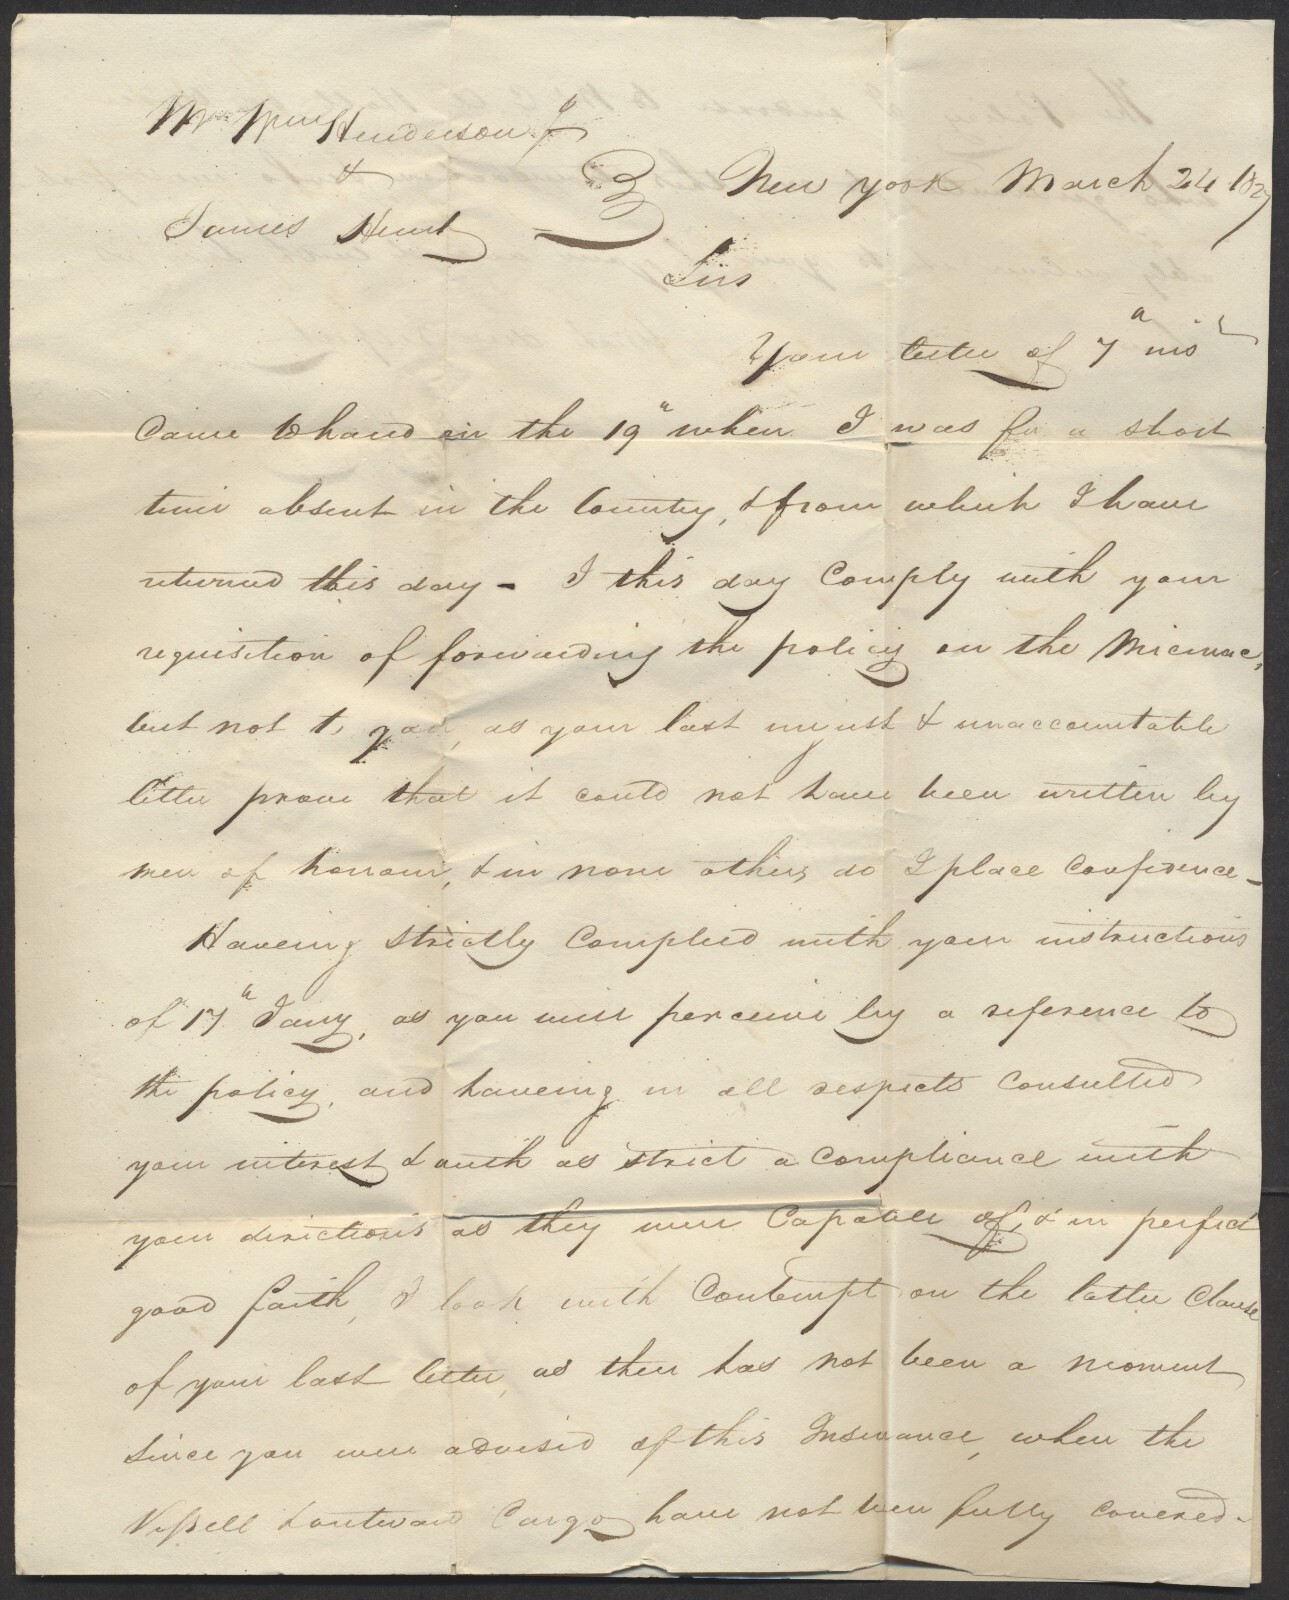 Mr Wm Henderson Jr
&
James Hunt
New York March 24 1827
Sirs
Your letter of 7th inst
Came to hand on the 19th when I was for a short
time absent in the Country, & from which I have
returned this day - I this day Comply with your
requisition of forwarding the policy on the Micmac,
but not to you, as your last unjust & unaccountable
letter prove that it could not have been written by
men of honour, & in none others do I place Confidence -
Haveing strictly Complied with your instructions
of 17th Jany, as you will perceive by a reference to
the policy, and haveing in all respects Consulted
your interest & with as strict a compliance with
your directions as they were Capable of, & in perfect
good faith, I look with Contempt on the latter Clause
of your last letter, as there has not been a moment
since you were advised of this Insurance, when the
Vessell & outward Cargo have not been fully covered -